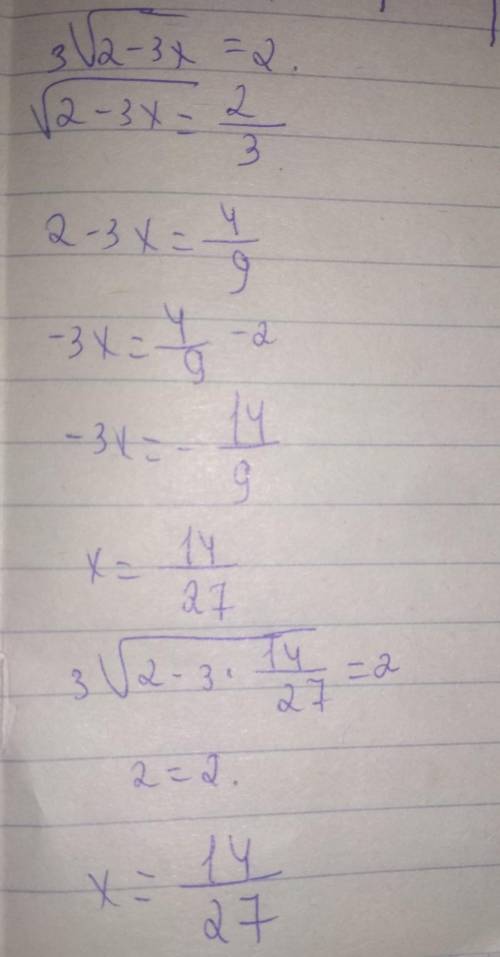 3√2-3x = 2.
√2-3x = 2/3
2-3x = 4/9
-3x = 4/9 -2
-3x = - 14/9
x = 14/27
3√2-3·14/27 = 2
2 = 2.
x = 14/27